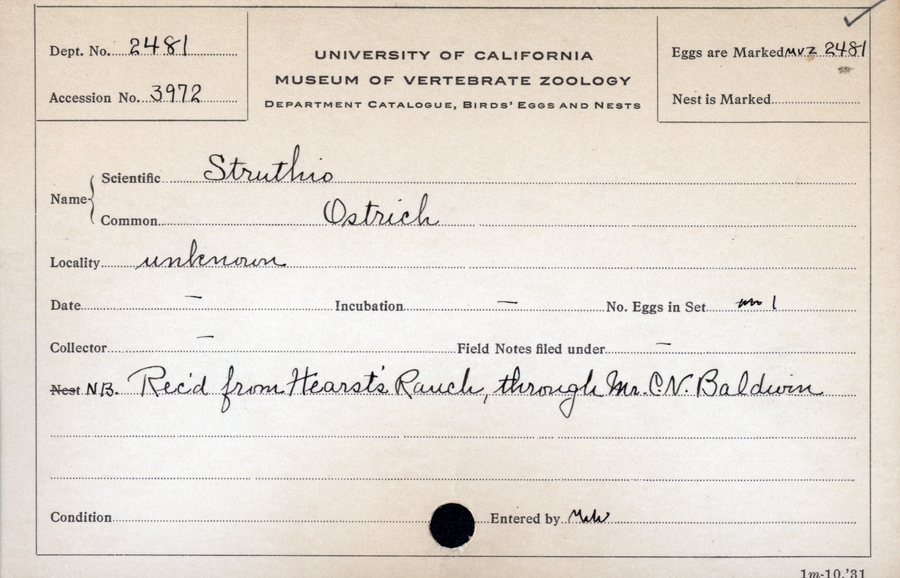 Dept. No. 2481
Accession No. 3972
UNIVERSITY OF CALIFORNIA
MUSEUM OF VERTEBRATE ZOOLOGY
DEPARTMENT CATALOGUE, BIRDS' EGGS AND NESTS
Eggs are Marked MVZ 2481
Nest is Marked
Name
Scientific Struthio
Common Ostrich
Locality unknown
Date — Incubation — No. Eggs in Set 1
Collector — Field Notes filed under —
Nest N.B. Rec'd from Hearst's Ranch, through Mr. C.N. Baldwin
Condition Entered by
1m-10,'31